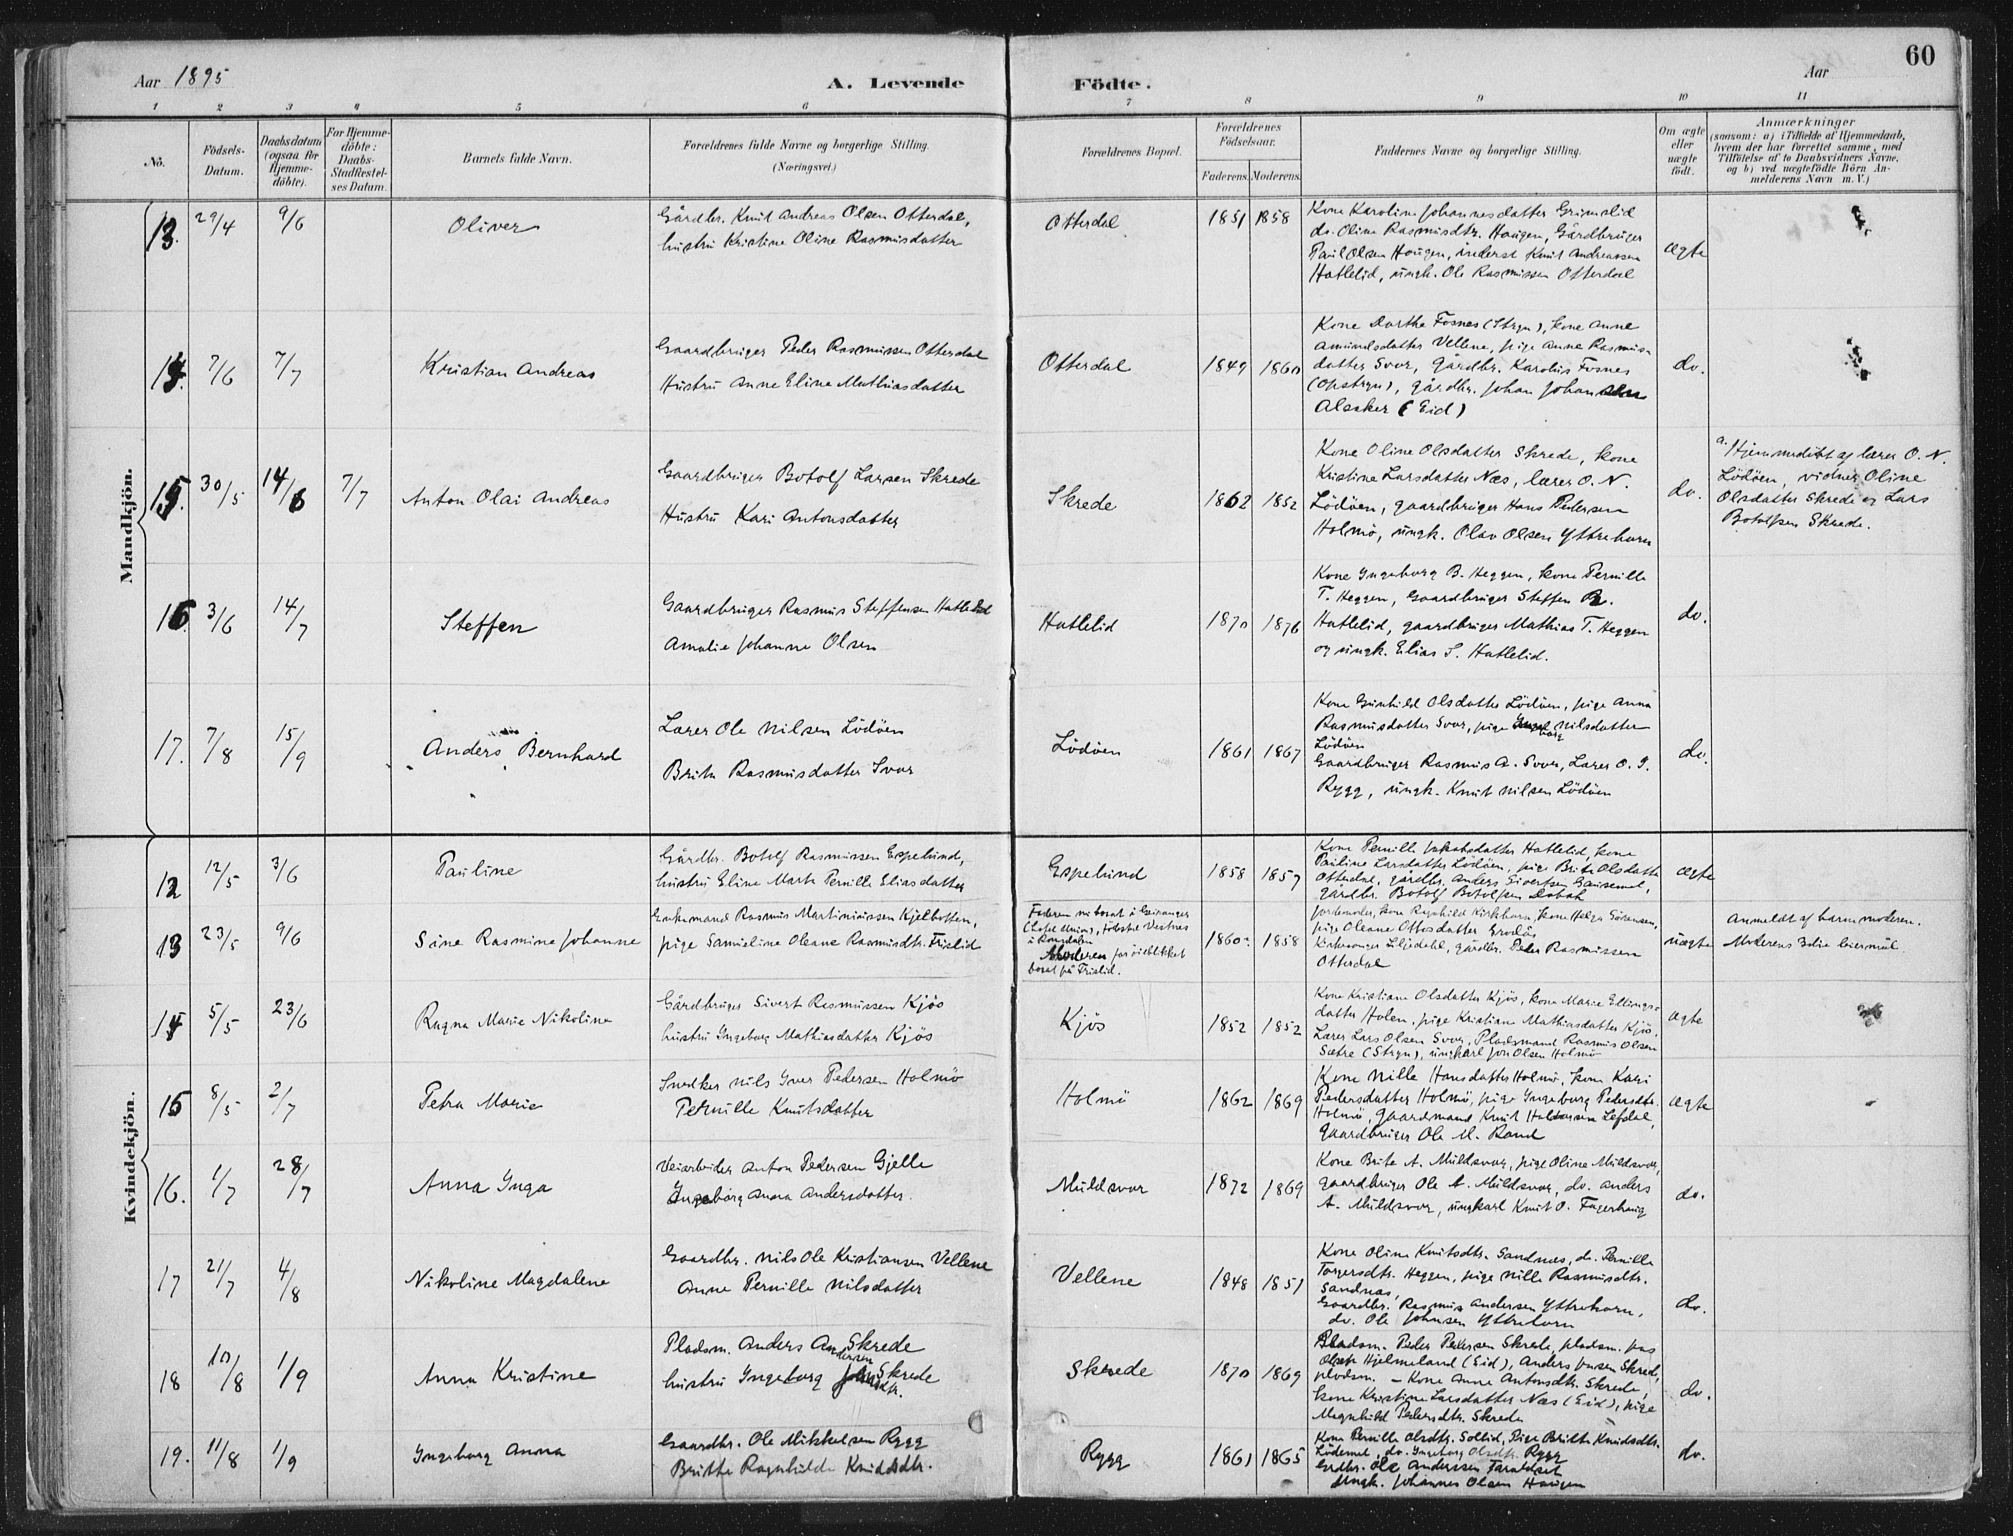 Aar 1895
A. Levende
Födte.
Aar
60
1 2 3 4 5 6 7 8 9 10 11
No.
Födsels-Datum.
Daabsdatum (ogsaa for Hjemme-döbte).
For Hjemme-döbte: Daabs-Stadfæstel-ses Datum.
Barnets fulde Navn.
Forældrenes fulde Navne og borgerlige Stilling. (Næringsvei.)
Forældrenes Bopæl.
Forældrenes Födselsaar.
Faderens. Moderens.
Faddernes Navne og borgerlige Stilling.
Om ægte eller uægte födt.
Anmærkninger
(saasom: a) i Tilfælde af Hjemmedaab, hvem der har forrettet samme, med Tilföielse af to Daabsvidners Navne, og b) ved uægtefödte Börn An-melderens Navn m. V.)
Mandkjön.
13. 29/4 9/6
Oliver
Gårdbr. Knut Andreas Olsen Otterdal,
hustru Kristine Oline Rasmusdatter
Otterdal
1851 1858
Kone Karoline Johannesdatter Grimslid
do. Oline Rasmusdtr. Haugen, Gårdbruger
Paul Olsen Haugen, inderst Knut Andreassen
Hatlelid, ungk. Ole Rasmussen Otterdal
ægte
14. 7/6 7/7
Kristian Andreas
Gaardbruger Peder Rasmussen Otterdal
Hustru Anne Eline Mathiasdatter
Otterdal
1849 1860
Kone Dorthe Fosnes (Stryn), kone Anne
Amundsdatter Vellene, pige Anne Rasmus-
datter Svor, gårdbr. Karolus Fosnes
(Opstryn), gårdbr. Johan Johansen
Alsaker (Eid)
do.
15. 30/5 14/6 7/7
Anton Olai Andreas
Gaardbruger Botolf Larsen Skrede
Hustru Kari Antonsdatter
Skrede
1862 1852
Kone Oline Olsdatter Skrede, kone
Kristine Larsdatter Næs, lærer O. N.
Lödöen, gaardbruger Hans Pedersen
Holmö, ungk. Olav Olsen Yttrehorn
do.
a. Hjemmedöbt af lærer O. N.
Lödöen, vidner Oline
Olsdatter Skrede og Lars
Botolfsen Skrede.
16. 3/6 14/7
Steffen
Gaardbruger Rasmus Steffensen Hatlelid
Amalie Johanne Olsen
Hatlelid
1870 1876
Kone Ingeborg B. Heggen, kone Pernille
T. Heggen, Gaardbruger Steffen R.
Hatlelid, gaardbruger Mathias T. Heggen
og ungk. Elias S. Hatlelid.
do.
17. 7/8 15/9
Anders Bernhard
Lærer Ole Nilsen Lödöen
Brita Rasmusdatter Svor
Lödöen
1861 1867
Kone Gunhild Olsdatter Lödöen, pige Anna
Rasmusdatter Svor, pige Ingeborg Nilsdatter
Lödöen
Gaardbruger Rasmus A. Svor, Lærer O. J.
Rygg, ungk. Knut Nilsen Lödöen
do.
Kvindekjön.
12 12/5 3/6
Pauline
Gårdbr. Botolf Rasmussen Espelund,
hustru Eline Marte Pernille Eliasdatter
Espelund
1858 1857
Kone Pernille Jakobsdatter Hatlelid, kone
Pauline Larsdatter Lödöen, pige Brite Olsdatter
Otterdal, gårdbr. Anders Sivertsen Gausemel,
gårdbr. Botolf Botolfsen
ægte
13 23/5 9/6
Sine Rasmine Johanne
Enkemand Rasmus Martiniussen Kjelbotten,
pige Samueline Oleane Rasmusdtr. Frislid
Faderen nu bosat i Geiranger
(Hotel Union),
i Romsdalen
Moderen for öieblikket
bosat på Frislid.
1860 1858
Jordemoder, kone Ragnhild Kirkhorn, kone Helga Sörensen,
pige Oleane Ottosdatter Grodås
Kirkesanger Liljedahl, gårdbr. Peder Rasmussen
Otterdal
uægte
Anmeldt af barnemoderen.
Moderens 3die leiermål.
14 5/5 23/6
Ragna Marie Nikoline
Gårdbruger Sivert Rasmussen Kjös
hustru Ingeborg Mathiasdatter Kjös
Kjös
1852 1852
Kone Kristiane Olsdatter Kjös, kone Marie Ellings-
datter Holen, pige Kristiane Mathiasdatter Kjös,
Lærer Lars Olsen Svor, Pladsmand Rasmus Olsen
Sætre (Stryn), ungkarl Jon Olsen Holmö
ægte
15 8/5 2/7
Petra Marie
Snedker Nils Iver Pedersen Holmö
Pernille Knutsdatter
Holmö
1862 1869
Kone Nille Hansdatter Holmö, kone Kari
Pedersdatter Holmö, pige Ingeborg Pedersdtr.
Holmö, gaardmand Knut Haldorsen Lefdal,
gaardbruger Ole M. Rand
ægte
16. 1/7 28/7
Anna Inga
Veiarbeider Anton Pedersen Gjelle
Ingeborg Anna Andersdatter.
Muldsvor
1872 1869
Kone Brite A. Muldsvor, pige Oline Muldsvor,
gaardbruger Ole A. Muldsvor, do. Anders
A. Muldsvor, ungkarl Knut O. Fagerhaug
do.
17 21/7 4/8
Nikoline Magdalene
Gaardbr. Nils Ole Kristiansen Vellene
Anne Pernille Nilsdatter
Vellene
1848 1851
Kone Oline Knutsdtr. Sandnes, do. Pernille
Torgersdtr. Heggen, pige Nille Rasmusdtr.
Sandnæs,
Gaardbr. Rasmus Andersen Yttrehorn,
do. Ole Johnsen Yttrehorn
do.
18 10/8 1/9
Anna Kristine
Pladsm. Anders Andersen Skrede
hustru Ingeborg Johnsdtr. Skrede
Skrede
1870 1869
Pladsm. Peder Pedersen Skrede, pladsm. Jons
Olsen Hjelmeland (Eid), Anders Jonsen Skrede,
pladsm. – Kone Anne Antonsdtr. Skrede,
kone Kristine Larsdatter Næs (Eid), pige
Magnhild Pedersdtr. Skrede
do.
19. 11/8 1/9
Ingeborg Anna
Gaardbr. Ole Mikkelsen Rygg
Britte Ragnhilde Knudsdtr.
Rygg
1861 1865
Kone Pernille Olsdtr. Sollid, Pige Britte Knudsdtr.
Lödemel, do. Ingeborg Olsdtr. Rygg
Grdbr. Ole Andersen Taraldset
Ungk. Johannes Olsen Haugen
do.